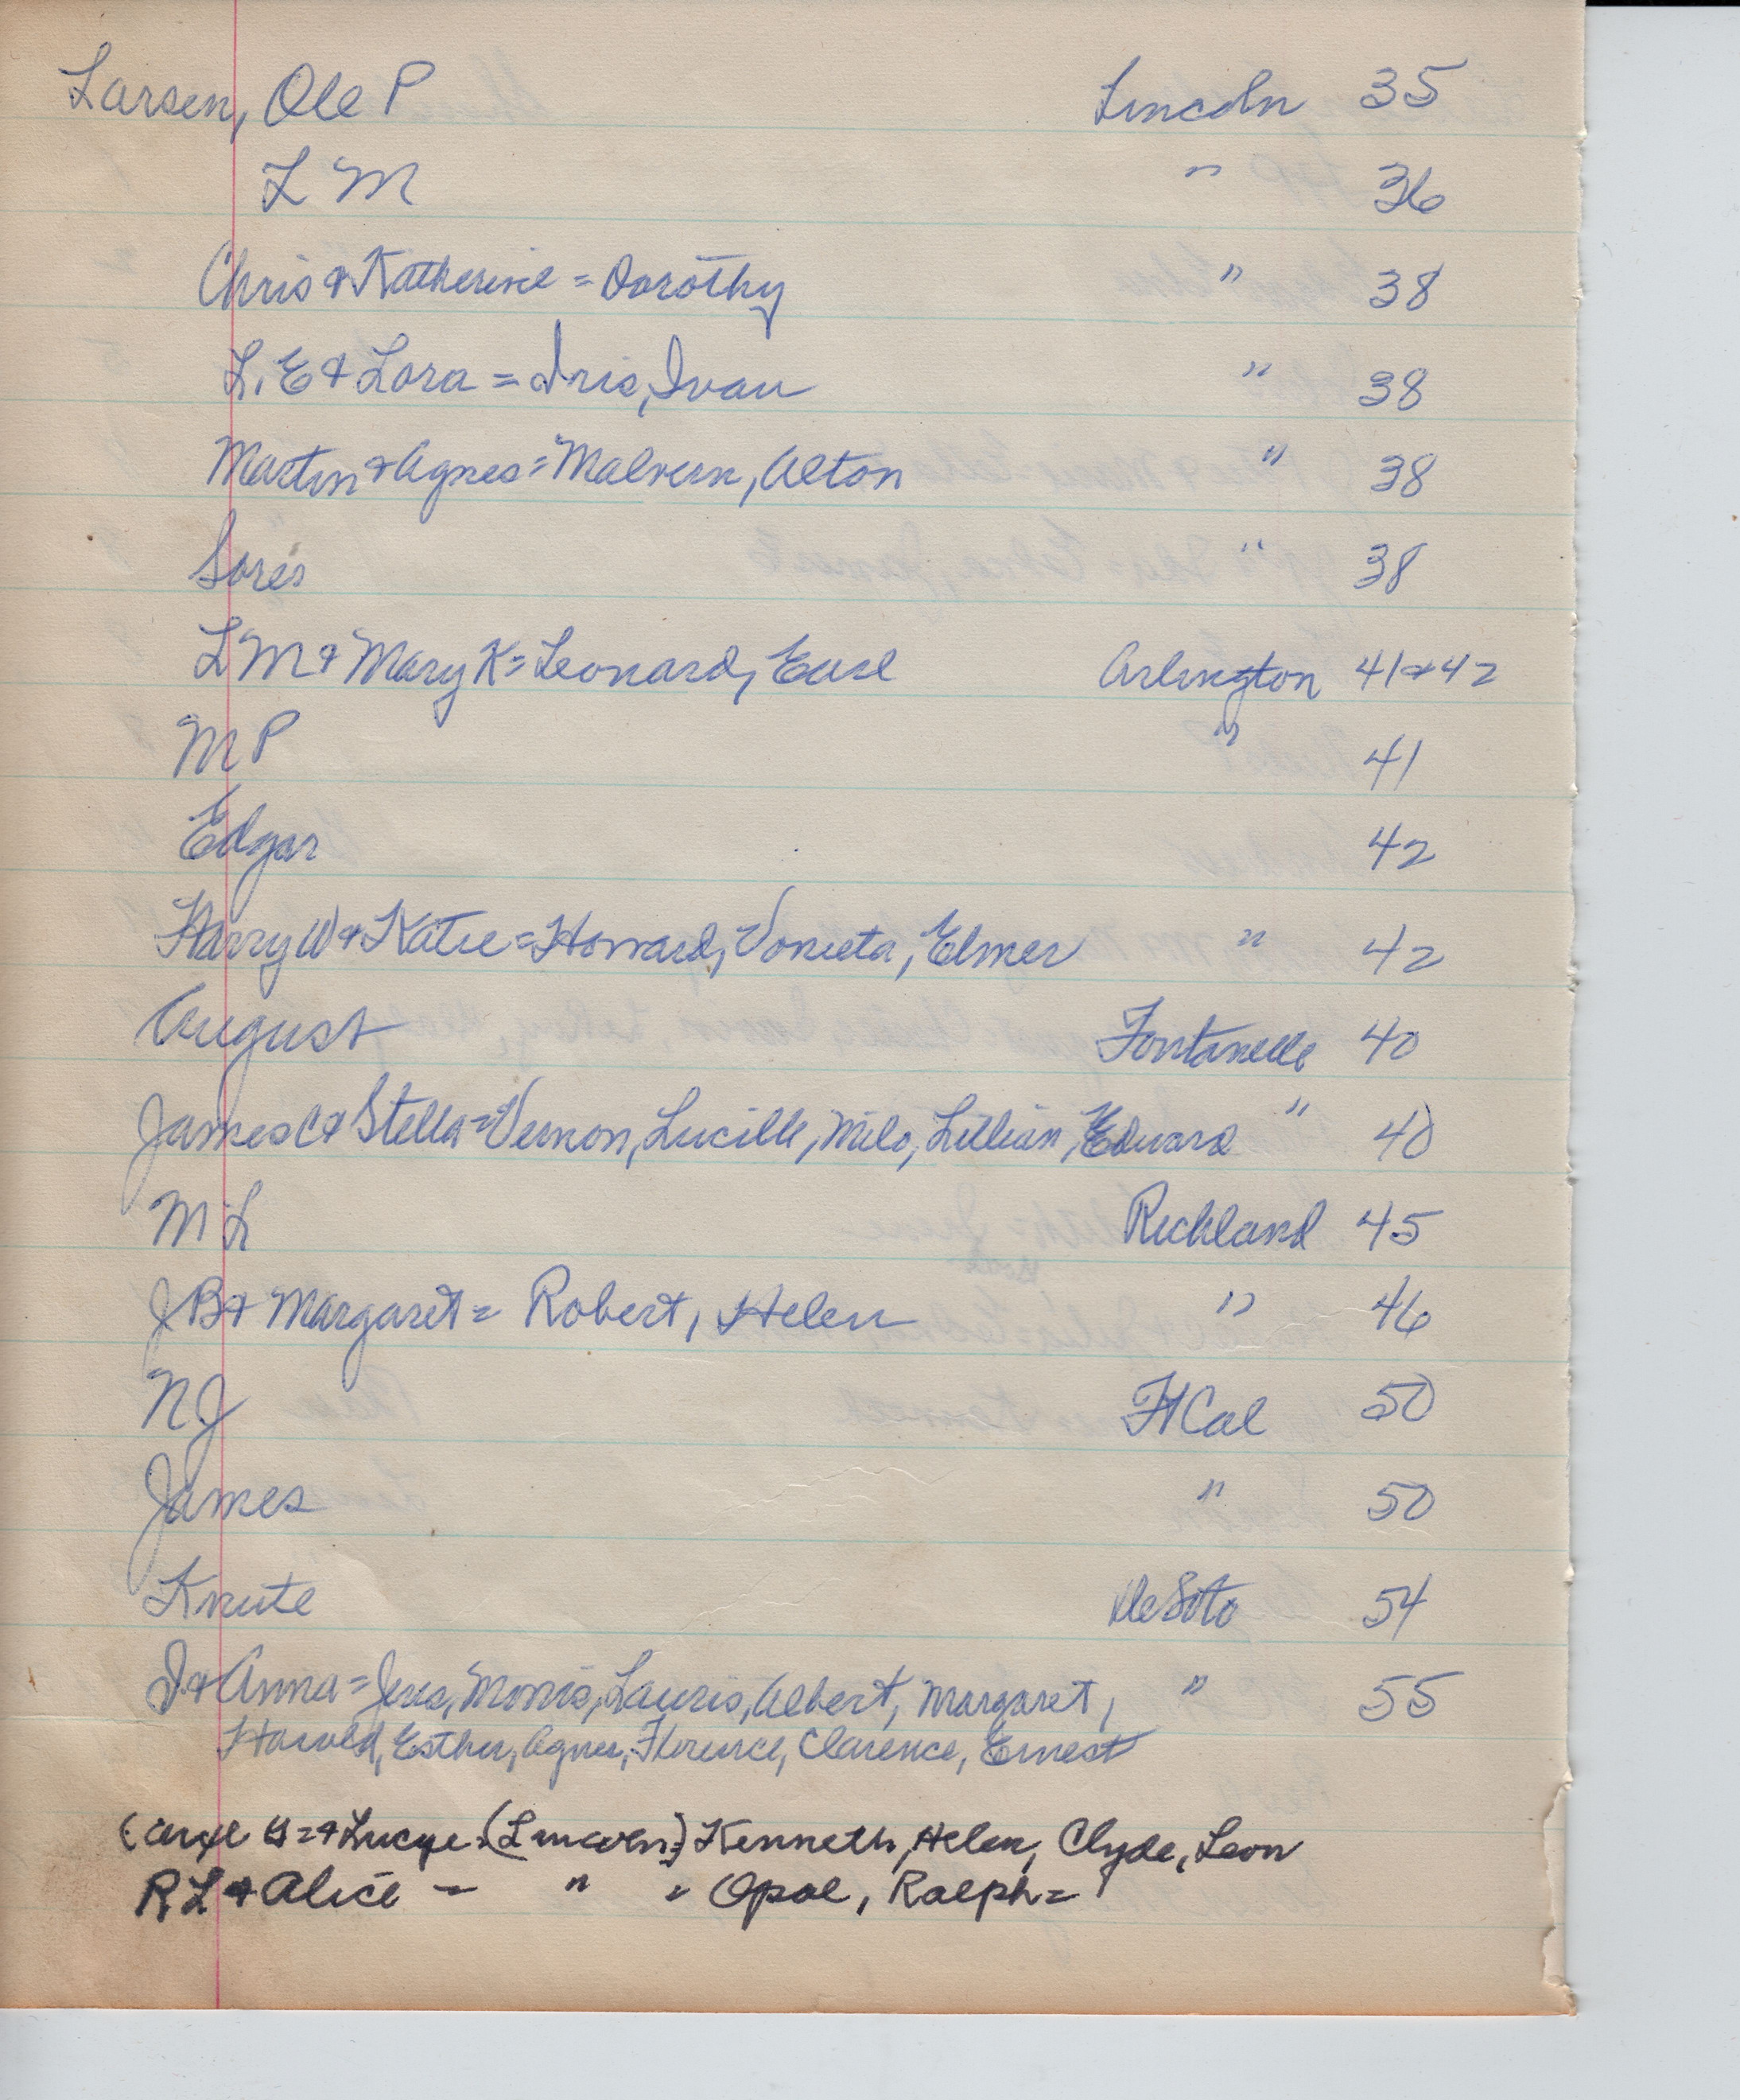 Larsen, Ole P Lincoln 35
L M " 36
Chris & Katherine = Dorothy " 38
L. E & Lora = Iris, Ivan " 38
Martin & Agnes = Malvern, Alton " 38
Soren " 38
L M & Mary K = Leonard, Earl Arlington 41 & 42
M P " 41
Edgar 42
Harry W & Katie = Howard, Vonieta, Elmer " 42
August Fontanelle 40
James C & Stella = Vernon, Lucille, Milo, Lillian, Edward " 40
M L Richland 45
J B & Margaret = Robert, Helen " 46
N J Ft Cal 50
James " 50
Knute De Soto 54
& Anna = Jens, Morris, Lauris, Albert, Margaret, " 55
Harold, Esther, Agnes, Florence, Clarence, Ernest
(Lincoln) Kenneth, Helen, Clyde, Leon
R L & Alice - " = Opal, Ralph =